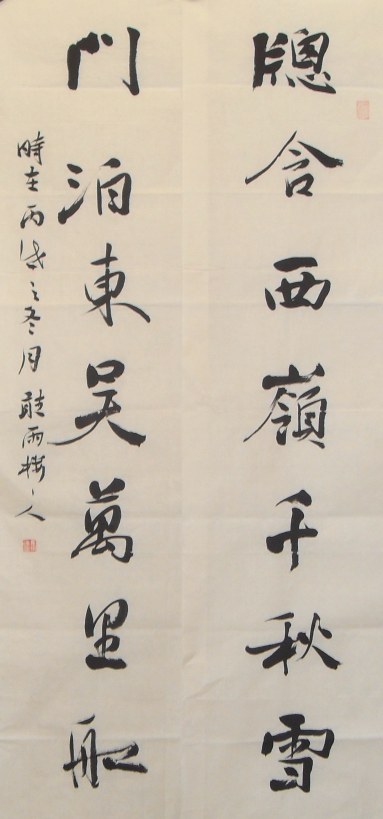 牕含西嶺千秋雪
門泊東吳萬里船
時在丙戌之冬月聽雨樓人